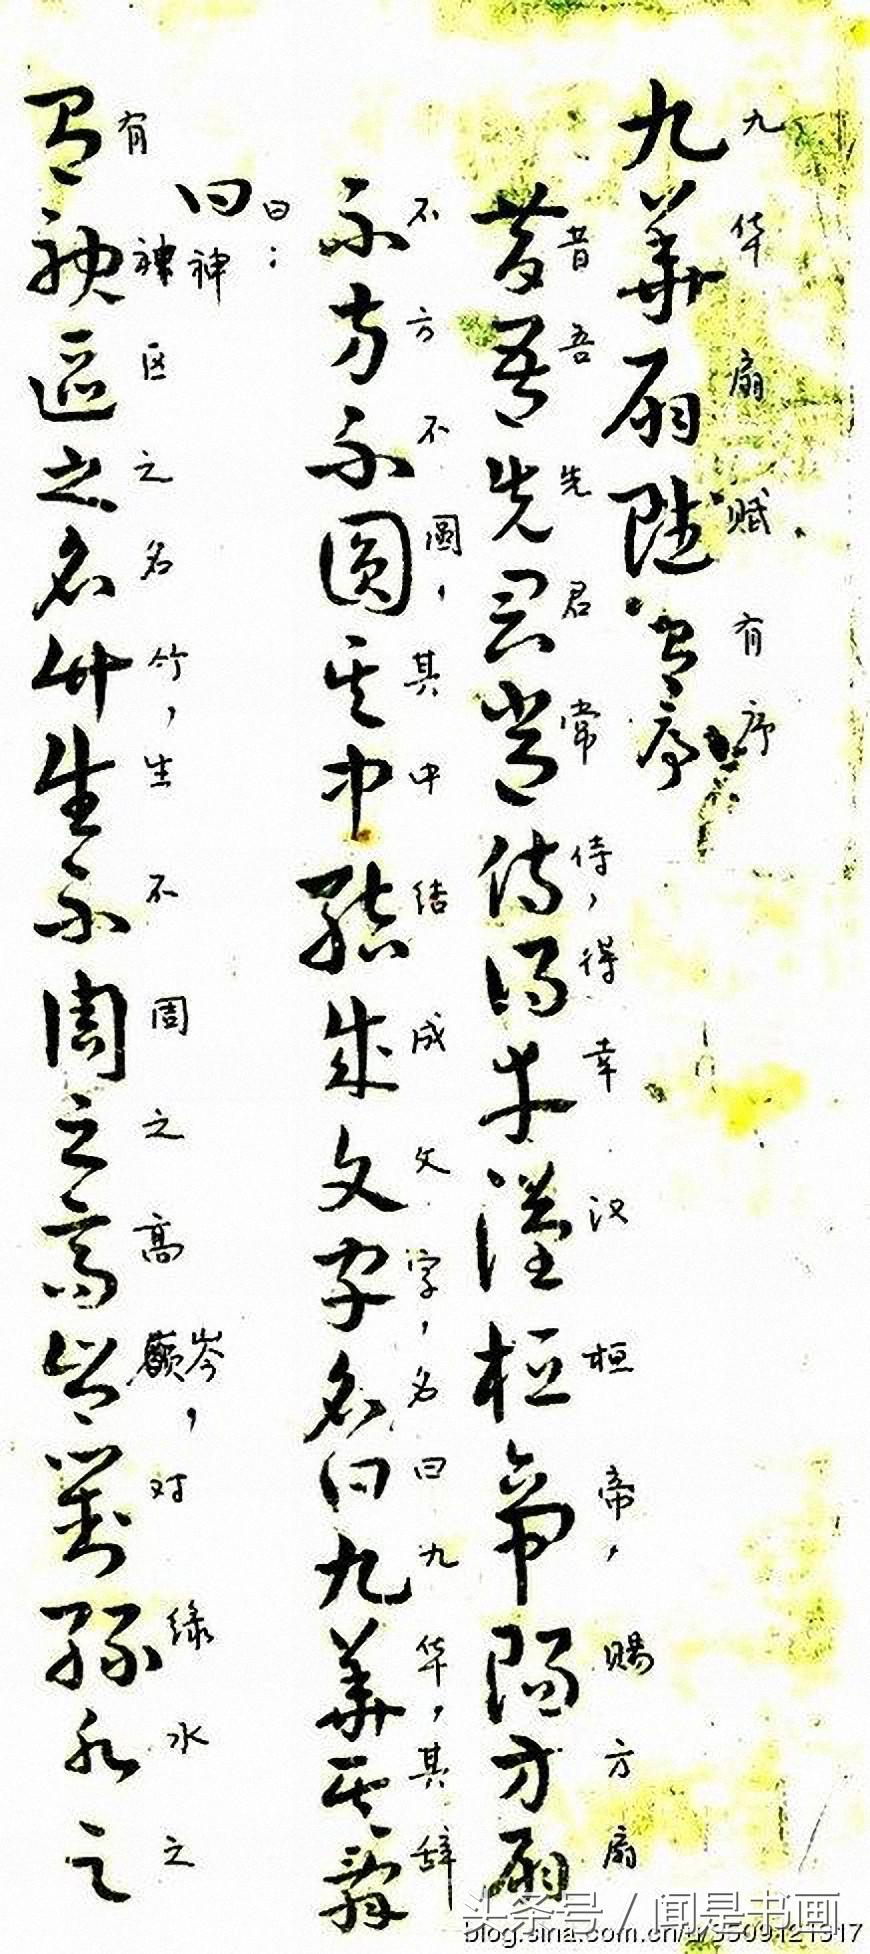 九華扇賦有序
九华扇赋.有序
昔吾先君常侍得幸漢桓帝賜方扇
昔吾先君常侍，得幸汉桓帝，赐方扇
不方不圓其中結成文字名曰九華其辭
不方不圆，其中结成文字，名曰九华，其辞
曰
曰：
神
有神區之名竹生不周之高岑對綠水之
有神区之名竹，生不周之高岑，对绿水之
头条号 / 闻是书画
blog.sina.com.cn/u/3509121517